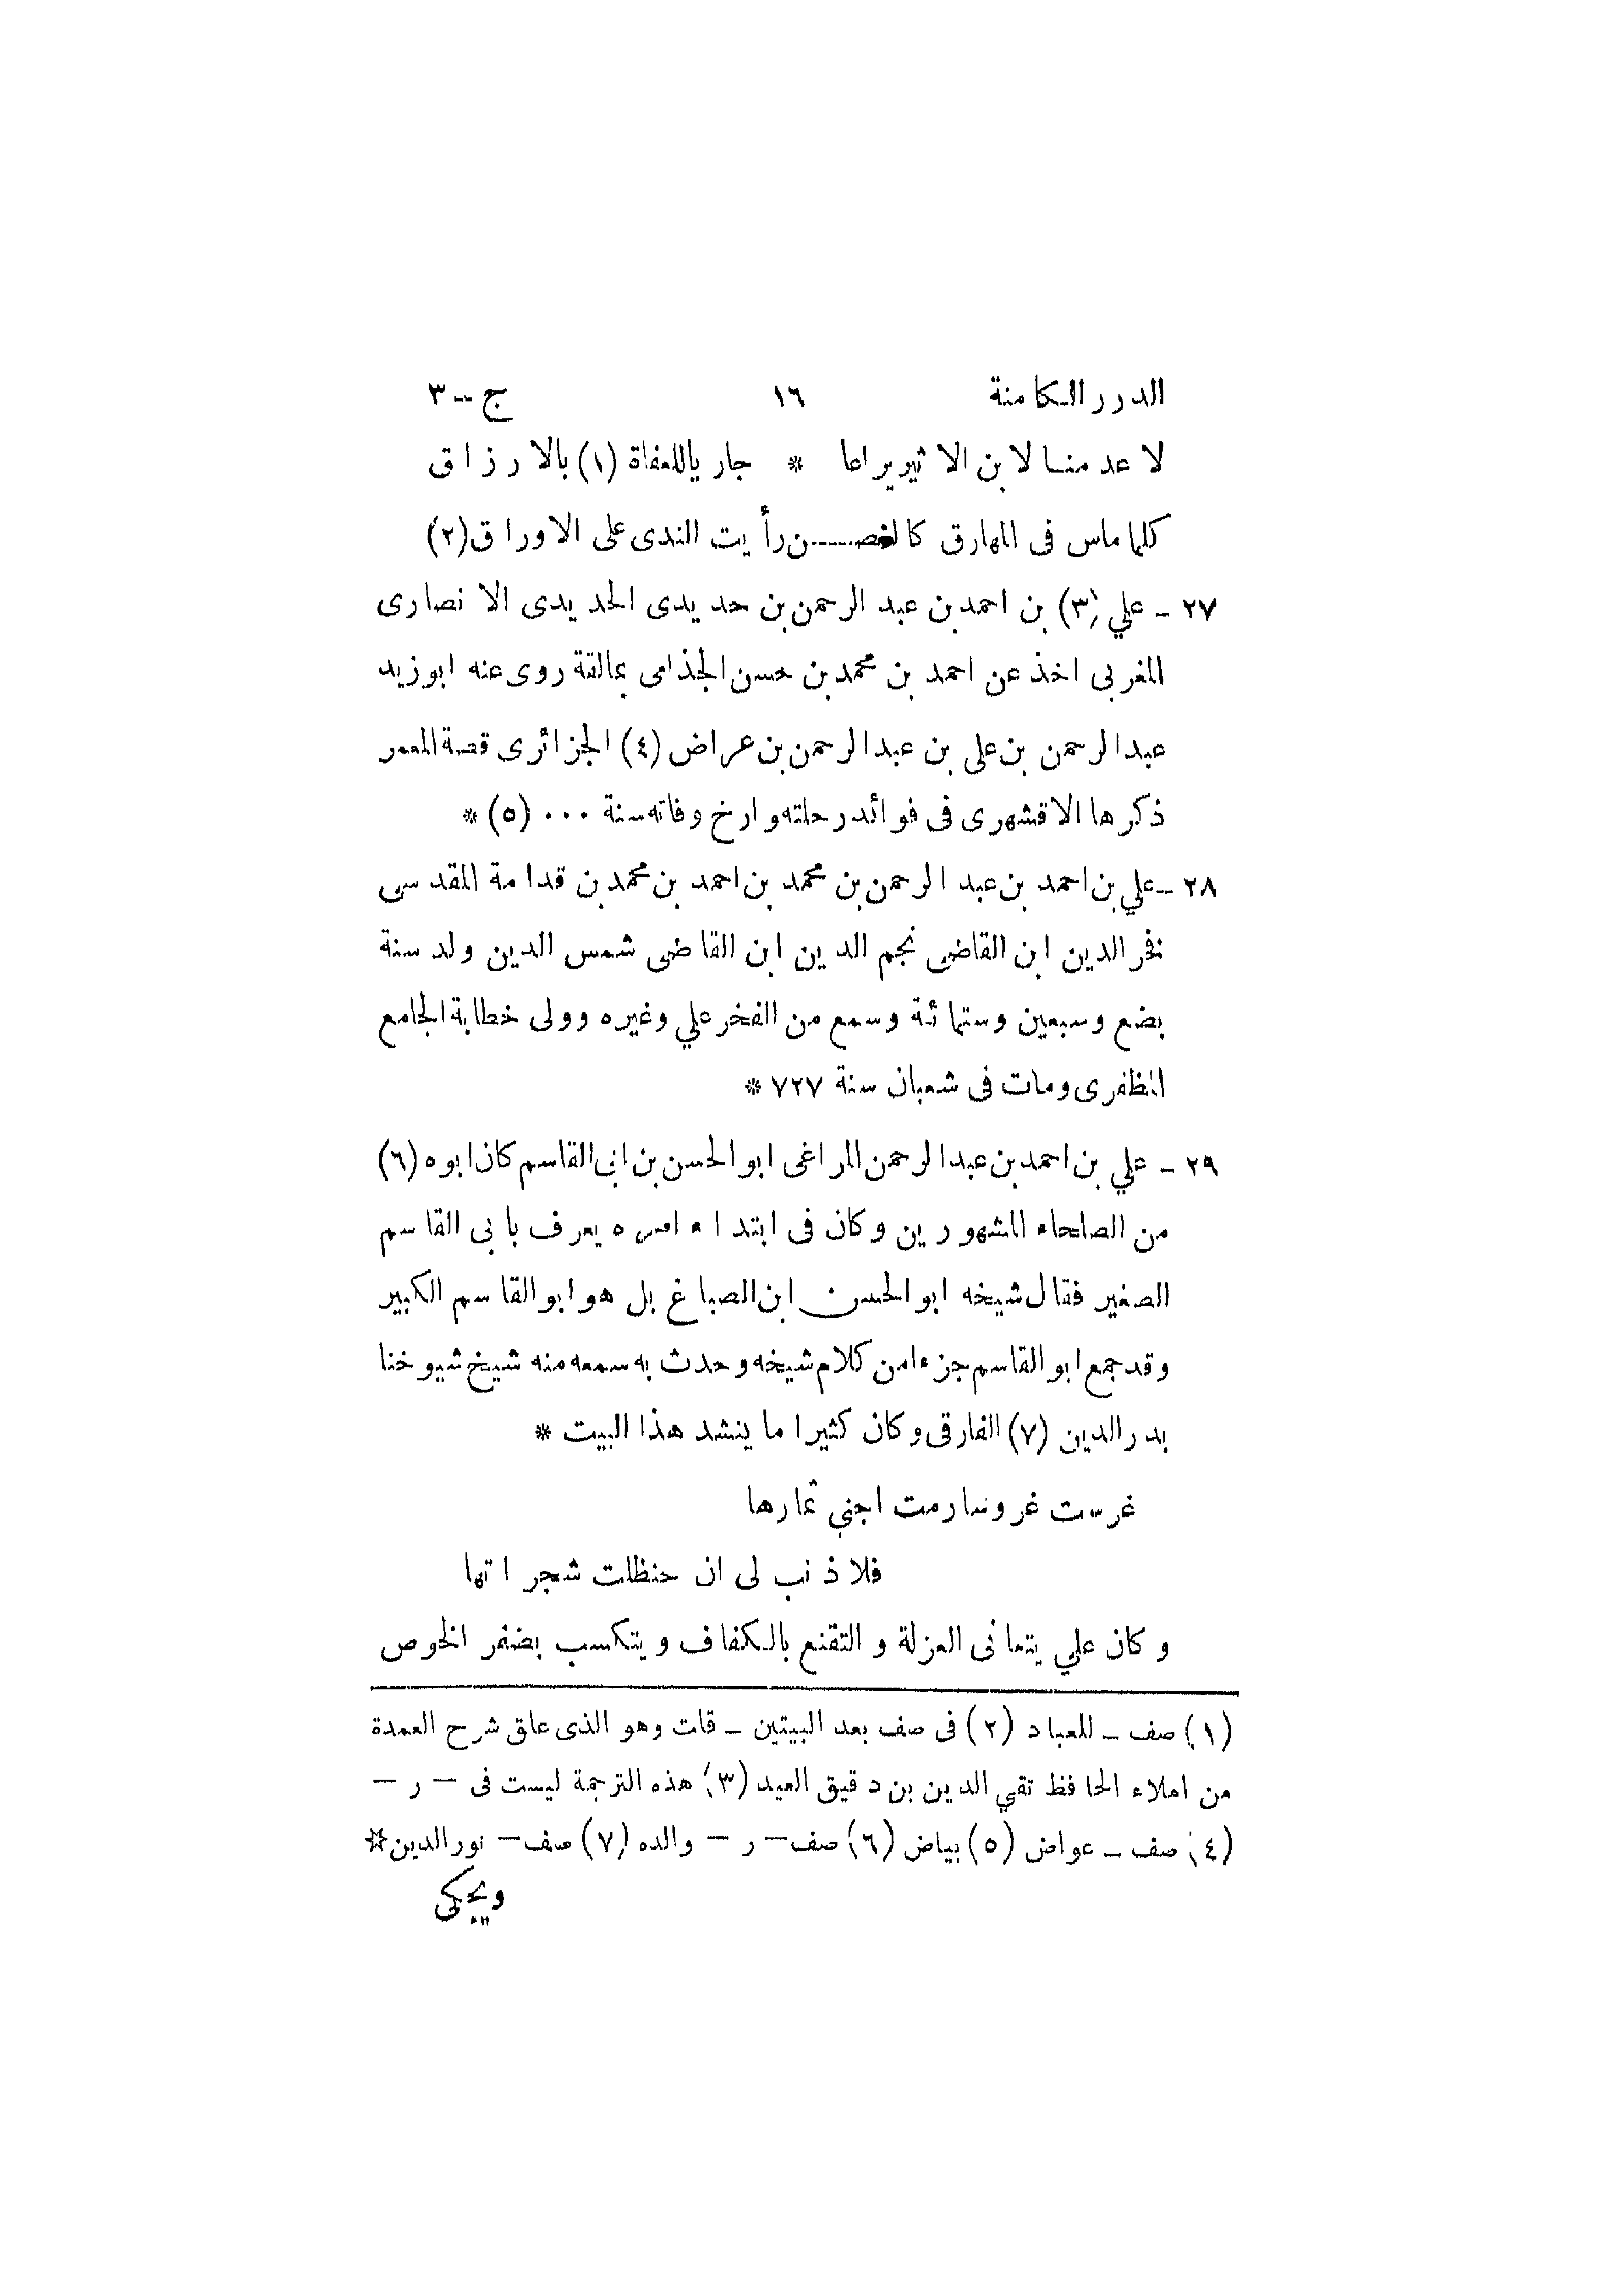 الدرر الكامنة ١٦ ج -- ٣
لا عدمنا لابن الاثير يراعا * جاريا للعفاة (١) بالارزاق
كلما ماس فى المهارق كالغصــن رأيت الندى على الاوراق (٢)
٢٧ - علي (٣) بن احمد بن عبد الرحمن بن حديدى الحديدى الانصارى
المغربى اخذ عن احمد بن محمد بن حسن الجذامى بمالقة روى عنه ابو زيد
عبد الرحمن بن على بن عبد الرحمن بن عراض (٤) الجزائرى قصة المعمر
ذكرها الاقشهرى فى فوائد رحلته وارخ وفاته سنة ٠٠٠ (٥) *
٢٨ - علي بن احمد بن عبد الرحمن بن محمد بن احمد بن محمد بن قدامة المقدسى
فخر الدين ابن القاضى نجم الدين ابن القاضى شمس الدين ولد سنة
بضع وسبعين وستمائة وسمع من الفخر علي وغيره وولى خطابة الجامع
المظفرى ومات فى شعبان سنة ٧٢٧ *
٢٩ - علي بن احمد بن عبد الرحمن المراغى ابو الحسن بن ابى القاسم كان ابوه (٦)
من الصلحاء المشهورين وكان فى ابتداء امره يعرف بابى القاسم
الصغير فقال شيخه ابو الحسن ابن الصباغ بل هو ابو القاسم الكبير
وقد جمع ابو القاسم جزءا من كلام شيخه وحدث به سمعه منه شيخ شيوخنا
بدر الدين (٧) الفارقى وكان كثيرا ما ينشد هذا البيت *
غرست غروسا رمت اجني ثمارها
فلا ذنب لى ان حنظلت شجراتها
وكان علي يتعانى العزلة والتقنع بالكفاف ويتكسب بضفر الخوص
(١) صف - للعباد (٢) فى صف بعد البيتين - قلت وهو الذى علق شرح العمدة
من املاء الحافظ تقي الدين بن دقيق العيد (٣) هذه الترجمة ليست فى - ر -
(٤) صف - عواض (٥) بياض (٦) صف - ر - والده (٧) صف - نور الدين *
ويحكى